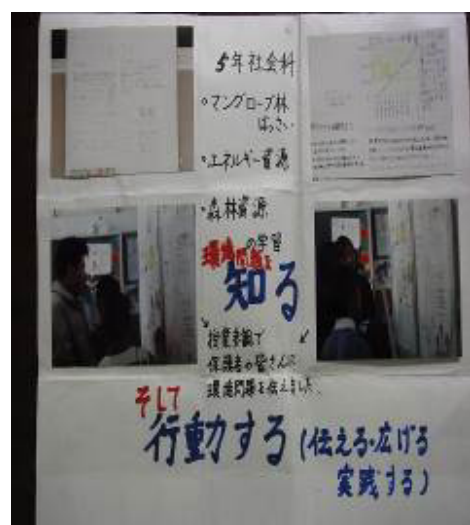 5年社会科
・マングローブ林
ばっさい
・エネルギー資源
・森林資源
の学習
環境問題を
知る
授業参観で
保護者の皆さんに
環境問題を伝えました。
そして
行動する(伝える・広げる
実践する)